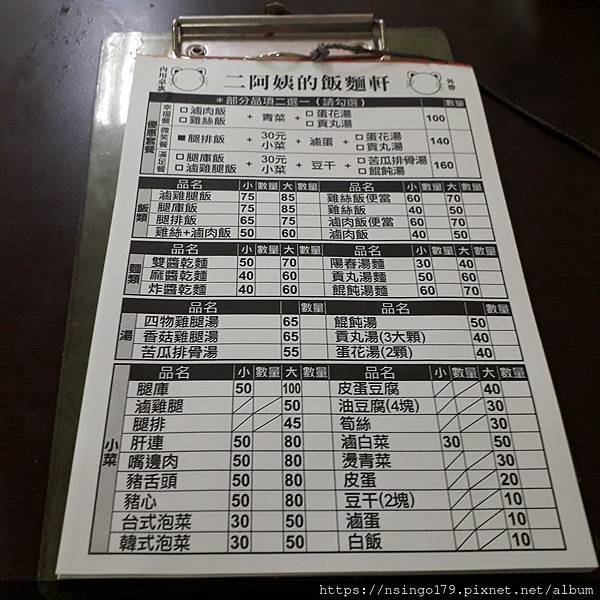 內用桌次 二阿姨的飯麵軒 外帶
*部分品項二選一(請勾選) 數量
優惠套餐
幸福餐 □滷肉飯 □雞絲飯 + 青菜 + □蛋花湯 □貢丸湯 100
微笑餐 ■腿排飯 + 30元小菜 + 滷蛋 + □蛋花湯 □貢丸湯 140
滿足餐 □腿庫飯 □滷雞腿飯 + 30元小菜 + 豆干 + □苦瓜排骨湯 □餛飩湯 160
飯類
品名 小 數量 大 數量 品名 小 數量 大 數量
滷雞腿飯 75 85 雞絲飯便當 60 70
腿庫飯 75 85 雞絲飯 40 50
腿排飯 65 75 滷肉飯便當 60 70
雞絲+滷肉飯 50 60 滷肉飯 40 50
麵類
品名 小 數量 大 數量 品名 小 數量 大 數量
雙醬乾麵 50 70 陽春湯麵 30 40
麻醬乾麵 40 60 貢丸湯麵 50 60
炸醬乾麵 40 60 餛飩湯麵 60 70
湯
品名 數量 品名 數量
四物雞腿湯 65 餛飩湯 50
香菇雞腿湯 65 貢丸湯(3大顆) 40
苦瓜排骨湯 55 蛋花湯(2顆) 40
小菜
品名 小 數量 大 數量 品名 小 數量 大 數量
腿庫 50 100 皮蛋豆腐 40
滷雞腿 50 油豆腐(4塊) 30
腿排 45 筍絲 30
肝連 50 80 滷白菜 30 50
嘴邊肉 50 80 燙青菜 30
豬舌頭 50 80 皮蛋 20
豬心 50 80 豆干(2塊) 10
台式泡菜 30 50 滷蛋 10
韓式泡菜 30 50 白飯 10
https://nsingo179.pixnet.net/album